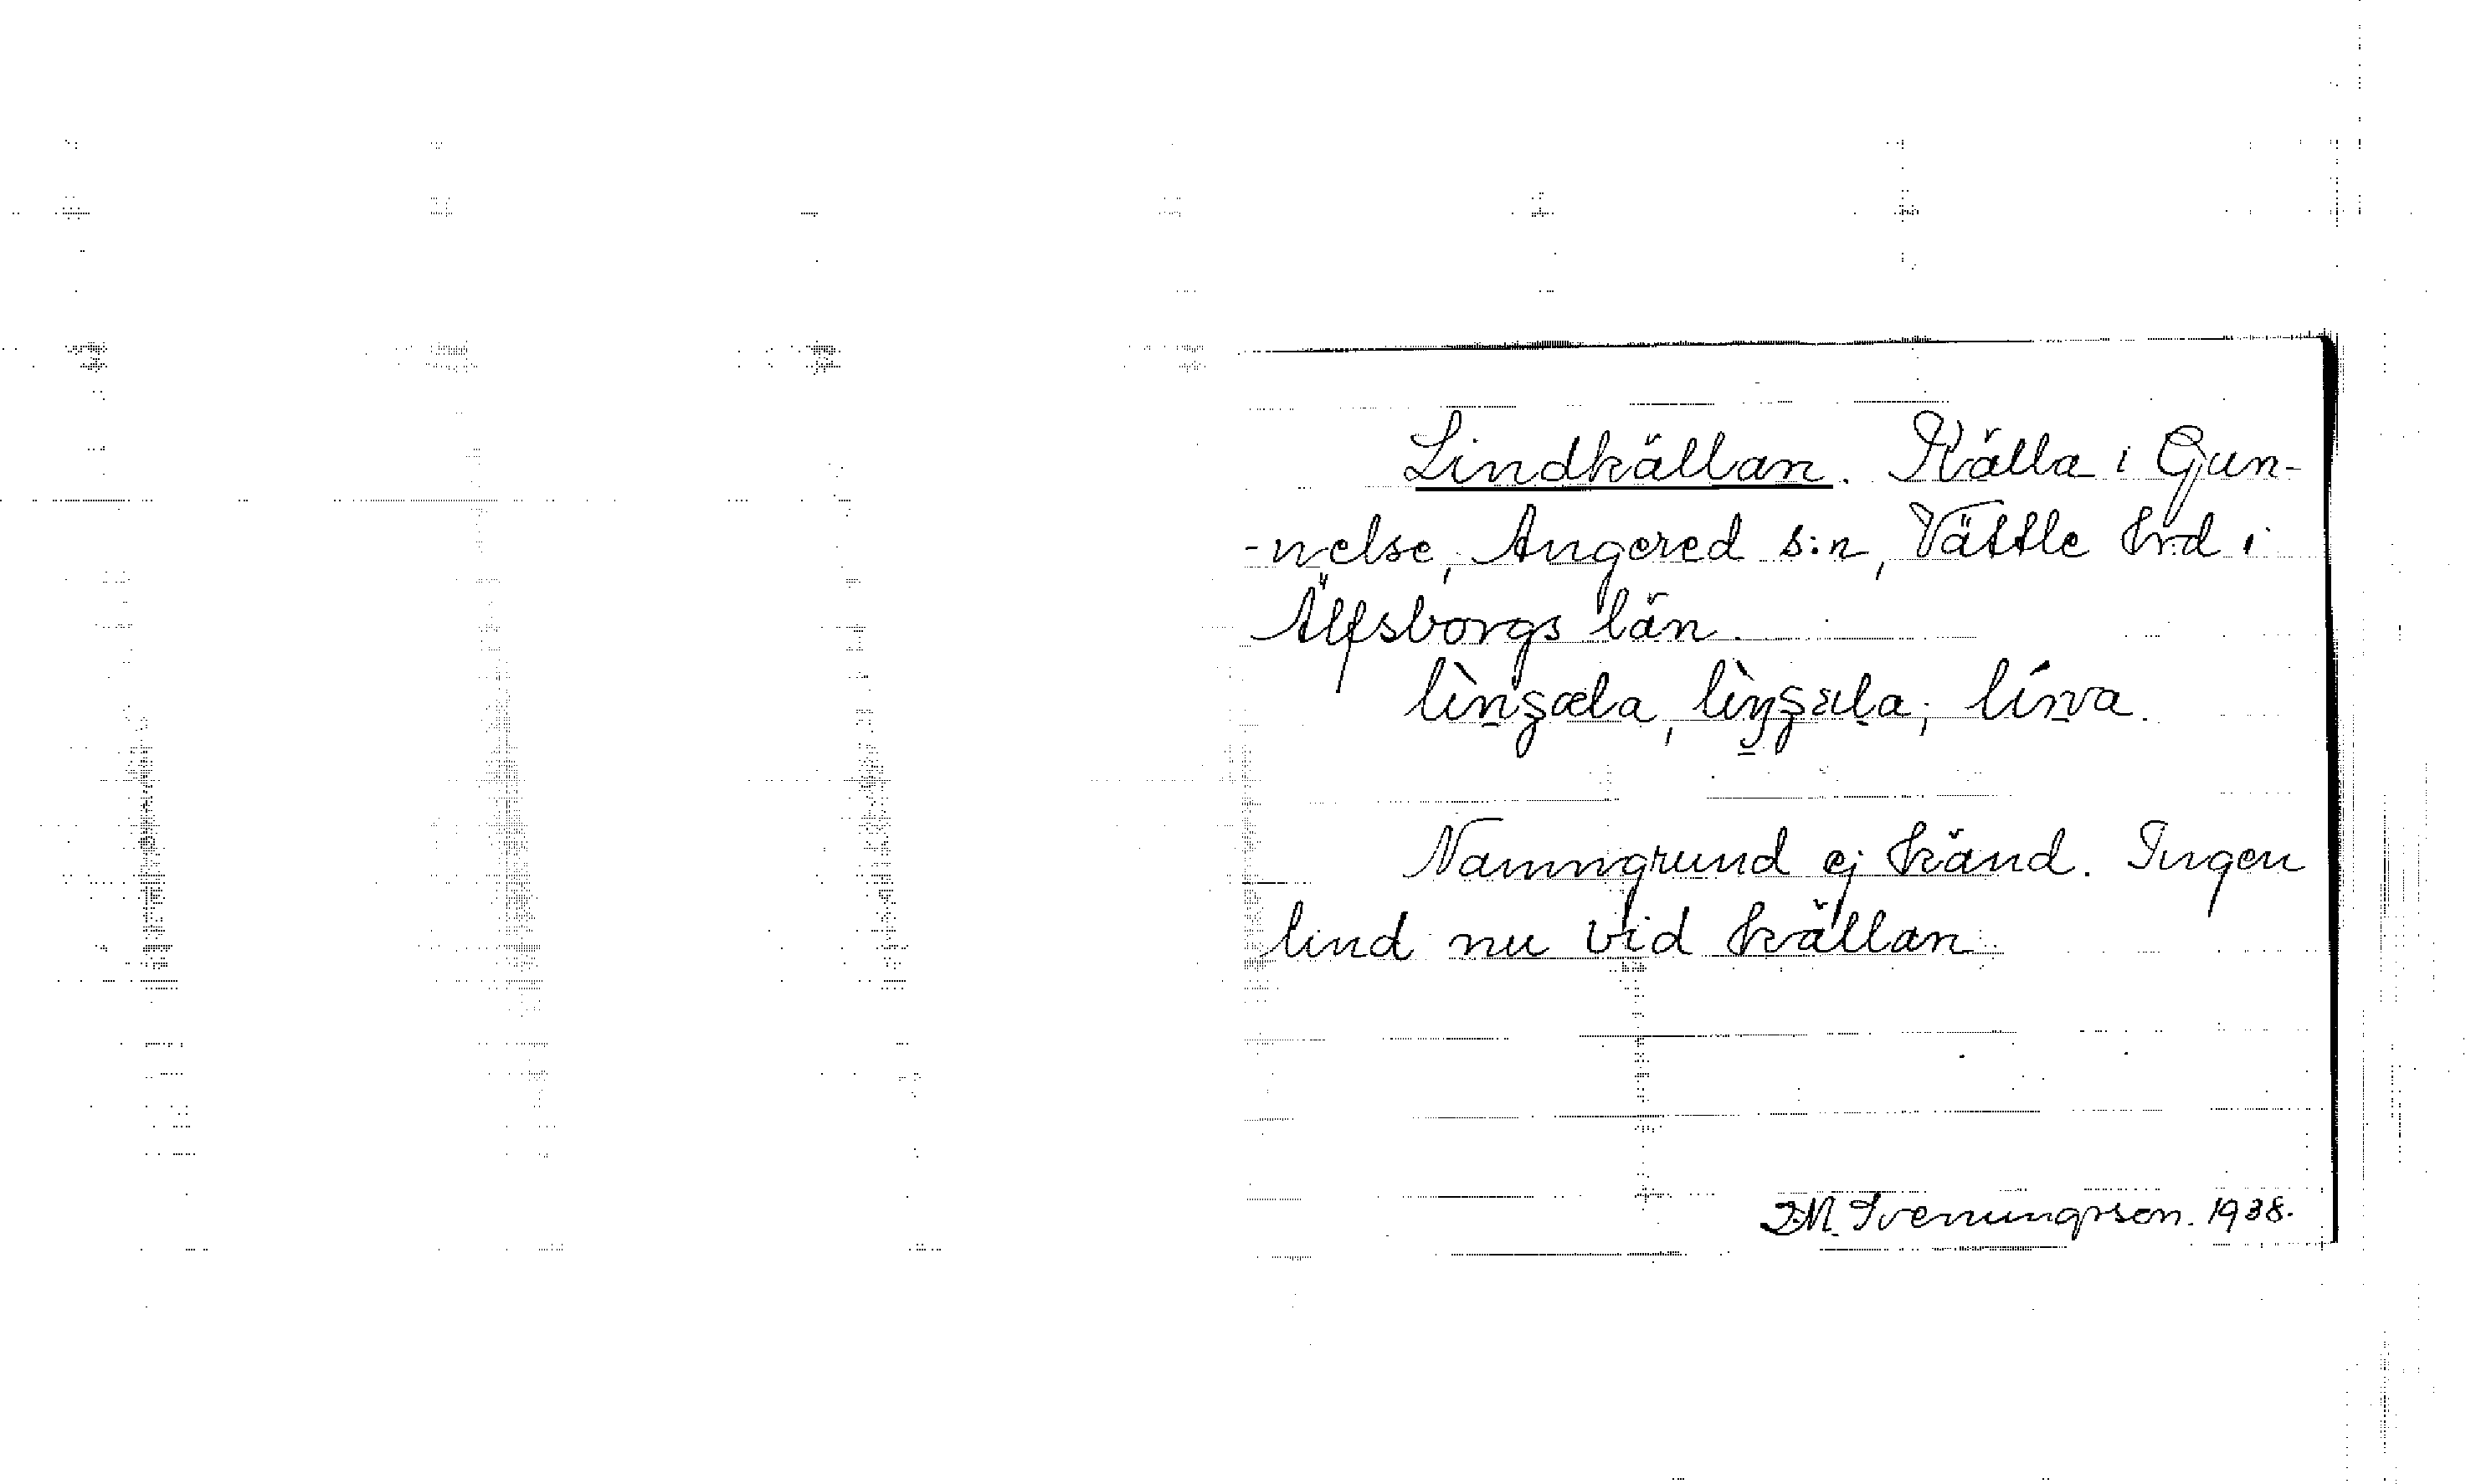 Lindkällan. Källa i Gun-
-nelse, Angered s:n, Vättle hrd i
Älfsborgs län.
Namngrund ej känd. Ingen
lind nu vid källan
Svenungsson. 1938.